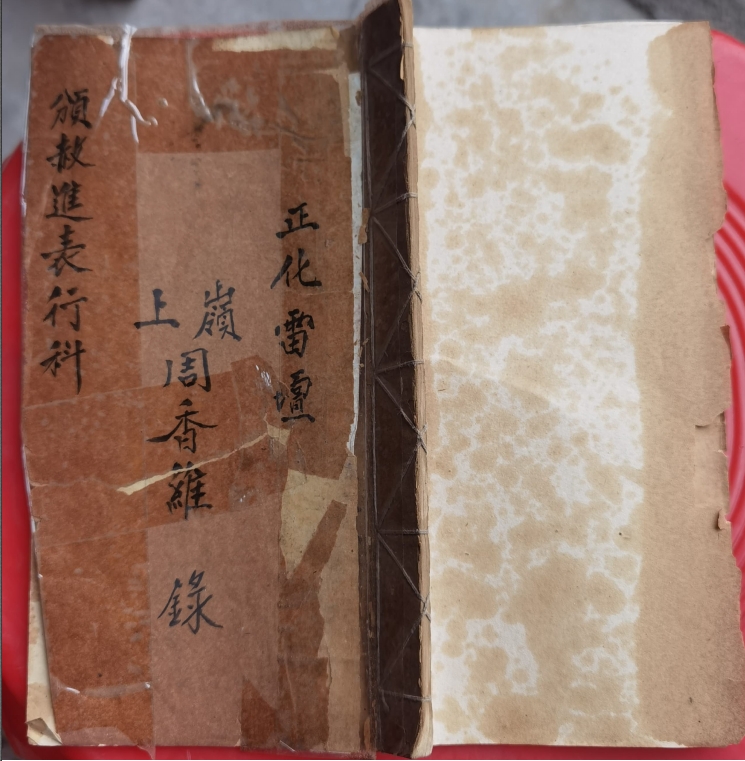 正化雷壇
嶺上
周香
錄
頒赦進表行科